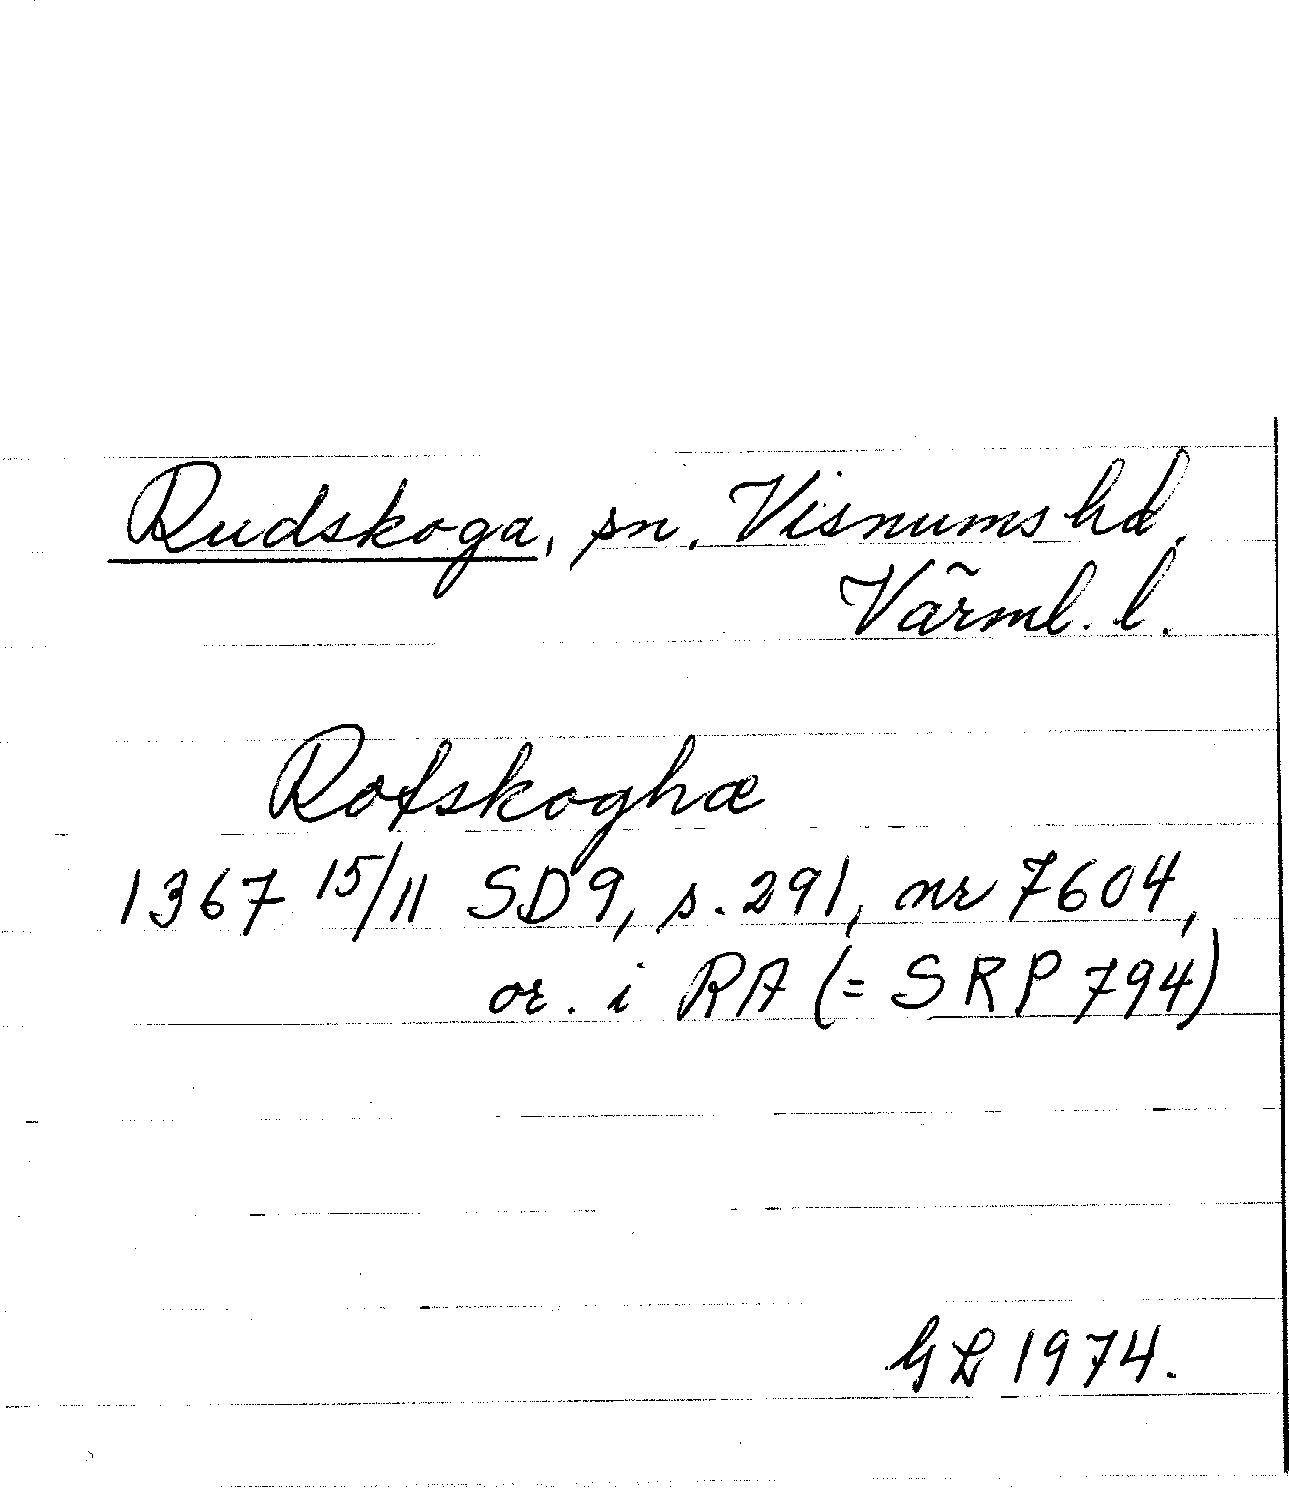 Rudskoga, sn, Visnums hd,
Värml. l.
Rotskoghæ
1367 15/11 SD 9, s. 291, nr 7604,
or. i RA (= SRP 794)
GL 1974.